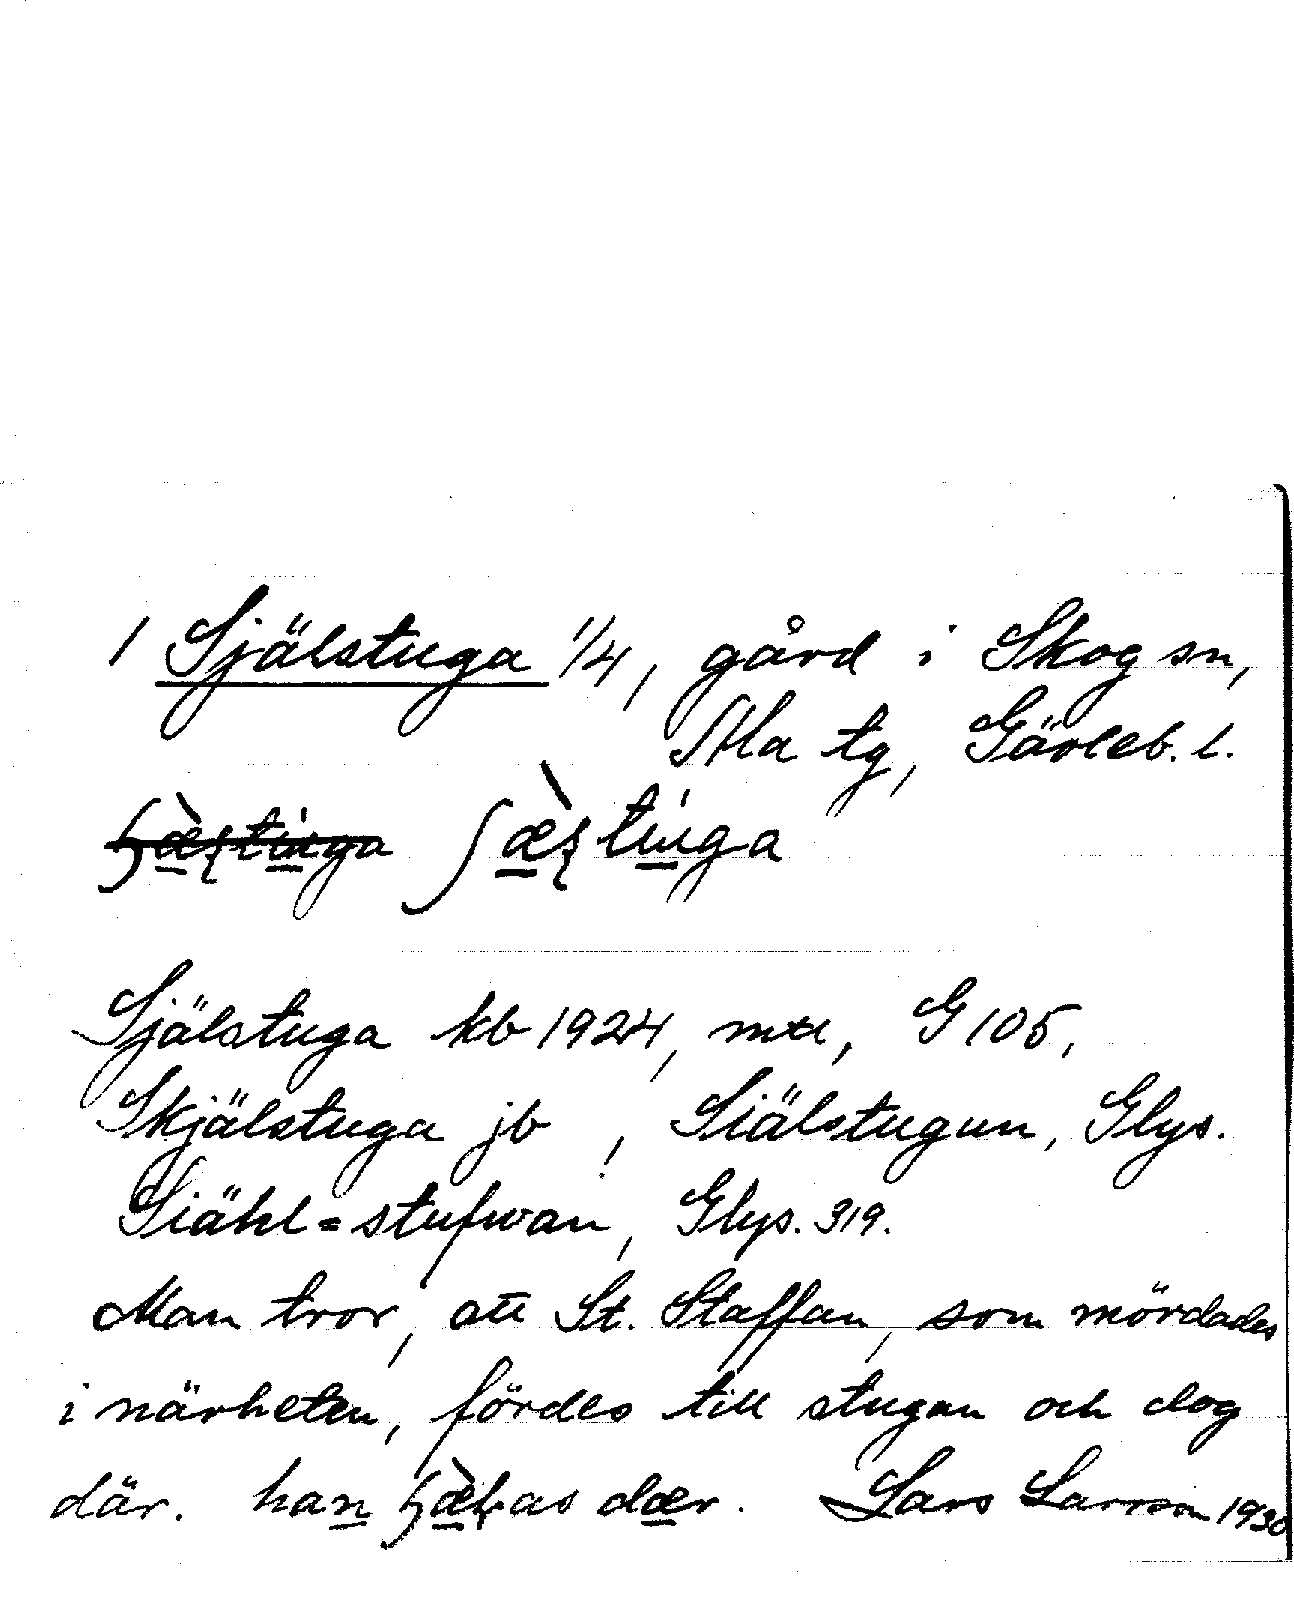 1 Själstuga 1/4, gård i Skog sn,
Ala tg, Gävleb. l.
Själstuga kb 1924, G 105,
Skjälstuga jb , Siälstugun, Glys.
Siähl=stufwan, Glys. 319.
Man tror, att St. Staffan, som mördades
i närheten, fördes till stugan och dog
där. han dær. Lars Larsson 1930